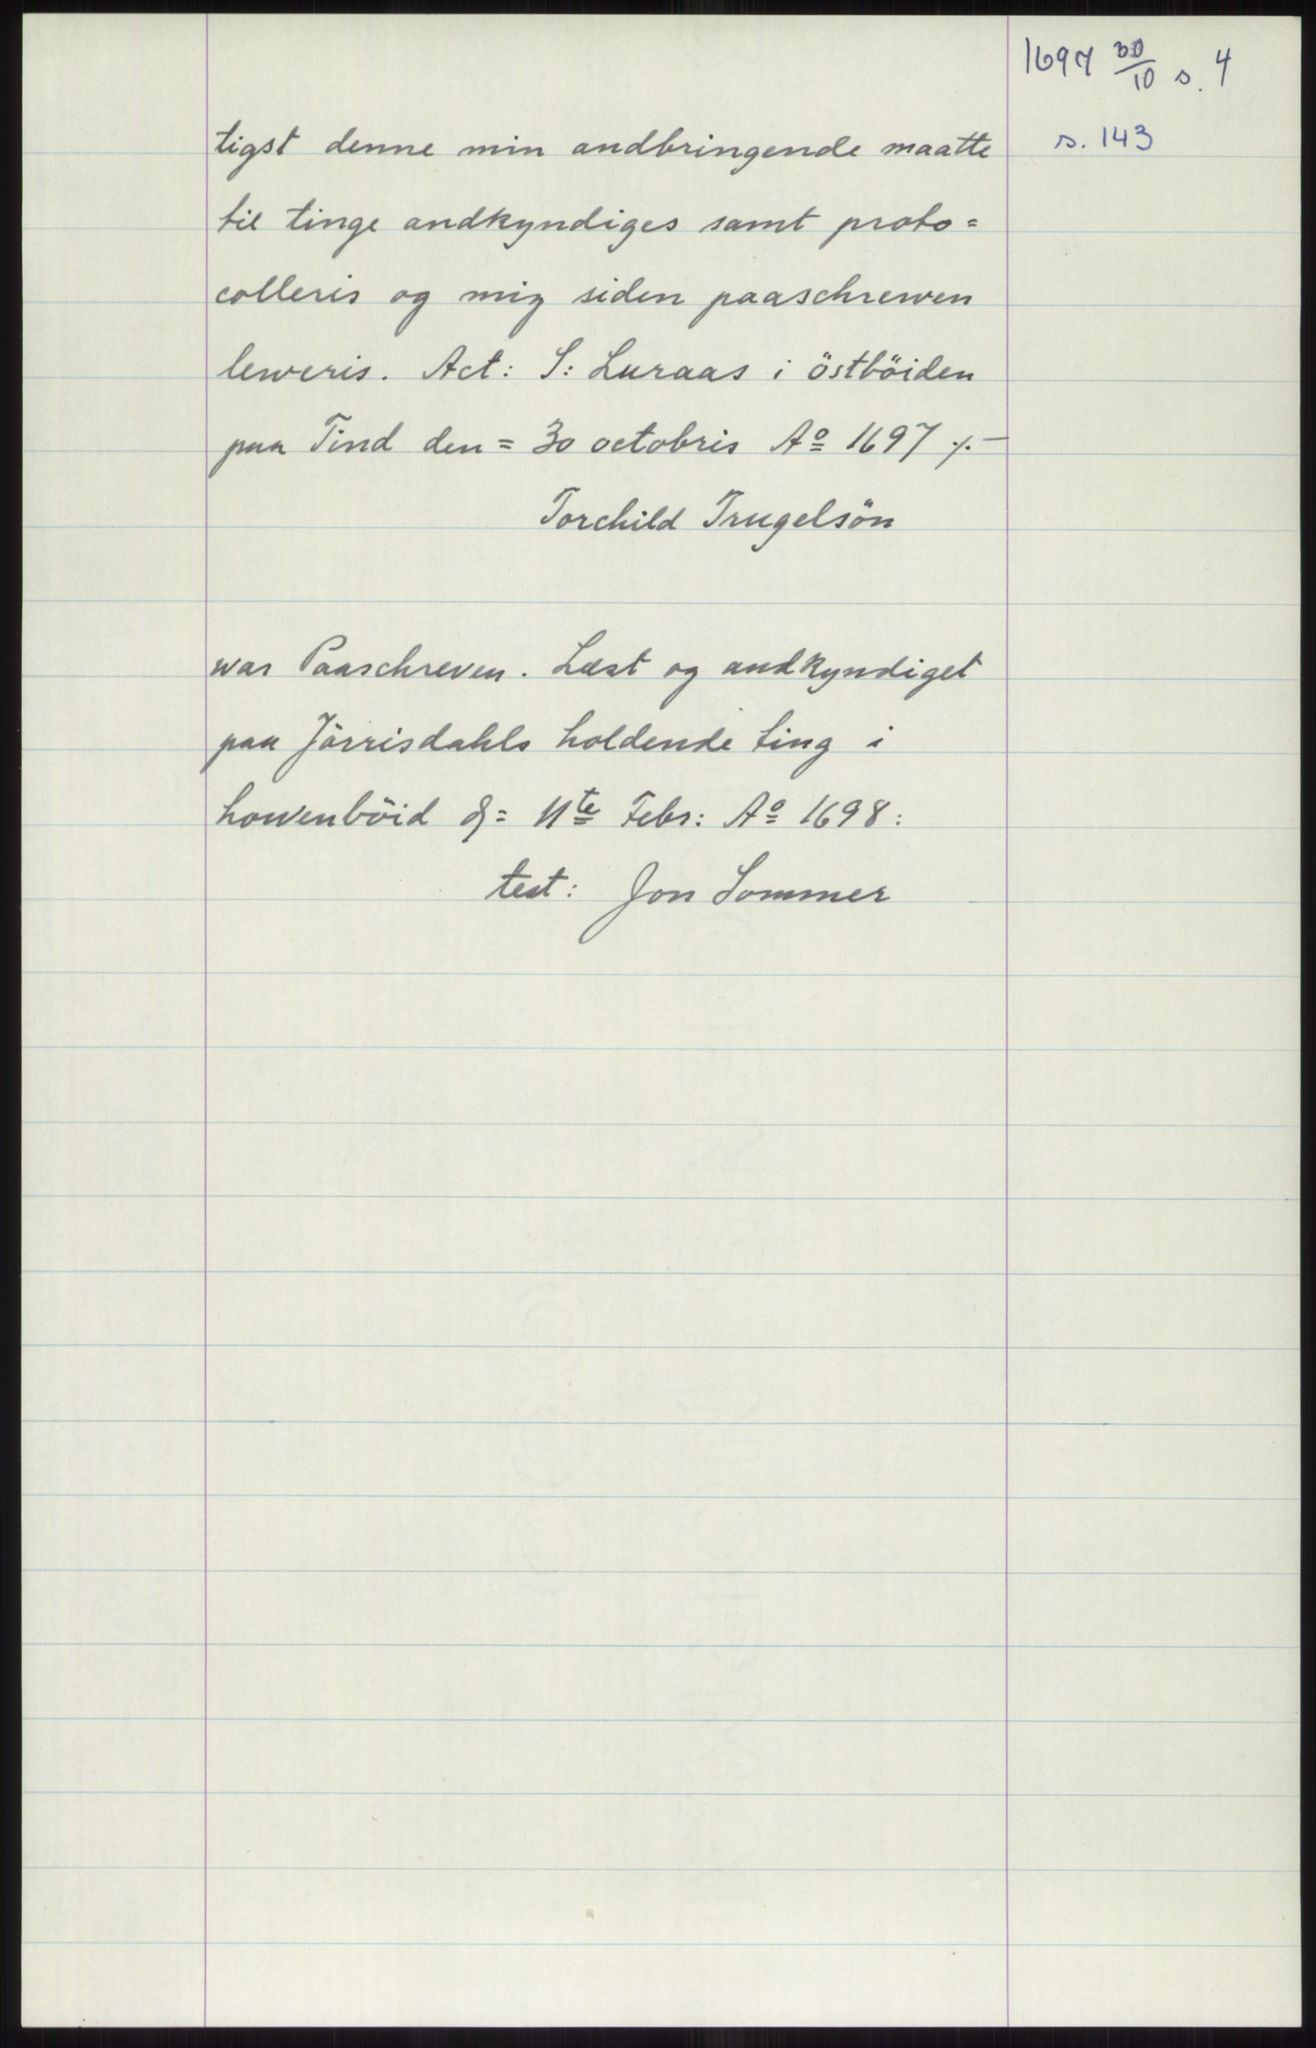 1697 30/10 s. 4
s. 143
tigst denne min andbringende maatte
til tinge andkyndiges samt proto=
colleris og mig siden paaschrewen
leweris. Act: S: Luraas i östböiden
paa Tind den = 30 octobris Aº 1697 ⁒
Torchild Trugelsön
war Paaschreven. Læst og andkyndiget
paa Jörrisdahls holdende ting i
howenböid d= 11te Febr: Aº 1698:
test: Jon Sommer